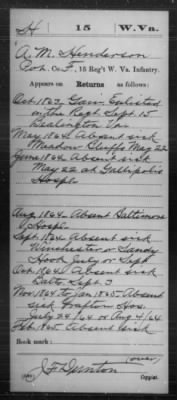 H | 15 | W. Va.
A. M. Henderson
Co. F, 15 Reg't W. Va. Infantry.
Appears on Returns as follows:
Oct 1862 Gain Enlisted
in the Regt Sept 15
Va
May 1864 Absent sick
Meadow Bluffs May 22
June 1864 Absent sick
May 22 at Gallipolis
Hosp.
Aug 1864 Absent Baltimore
Hosp.
Sept 1864 Absent sick
Winchester or Sandy
Hook July or Sept
Oct 1864 Absent sick
Balto Sept 3
Nov 1864 to Jan 1865 Absent
sick Grafton Hos.
July 24/64 or Aug 4/64
Feb 1865 Absent sick
Book mark:
(over)
J F Dunton
Copyist.